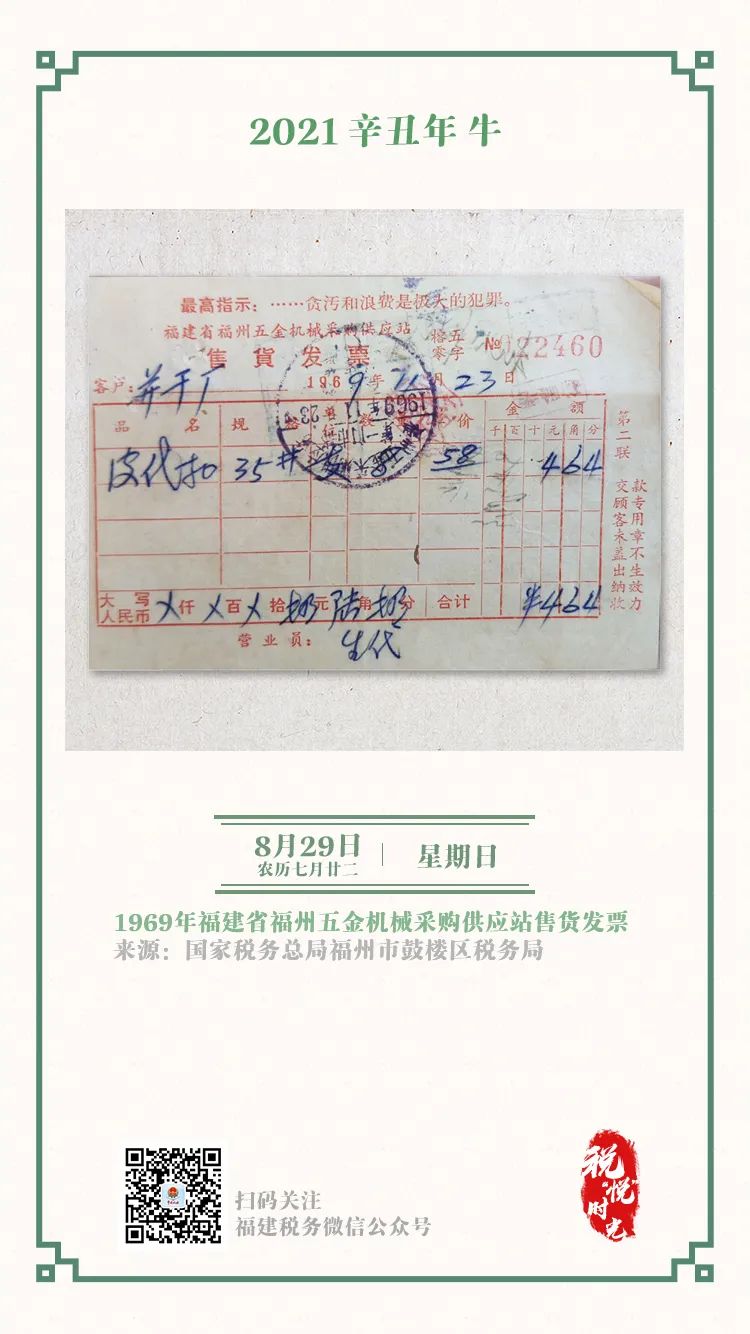 2021 辛丑年 牛
最高指示：……贪污和浪费是极大的犯罪。
福建省福州五金机械采购供应站
售貨发票
五
零字
№022460
客户：并干厂
1969年11月23日
品名 规 价 金额
千百十元角分
皮代扣 35# 58 464
大写
人民币 ㄨ仟ㄨ百ㄨ拾 元陆角 分 合计 ¥464
营业员：
第二联
交顾客未盖出纳收
款专用章不生效力
8月29日
农历七月廿二
星期日
1969年福建省福州五金机械采购供应站售货发票
来源：国家税务总局福州市鼓楼区税务局
扫码关注
福建税务微信公众号
税
"悦"
时光